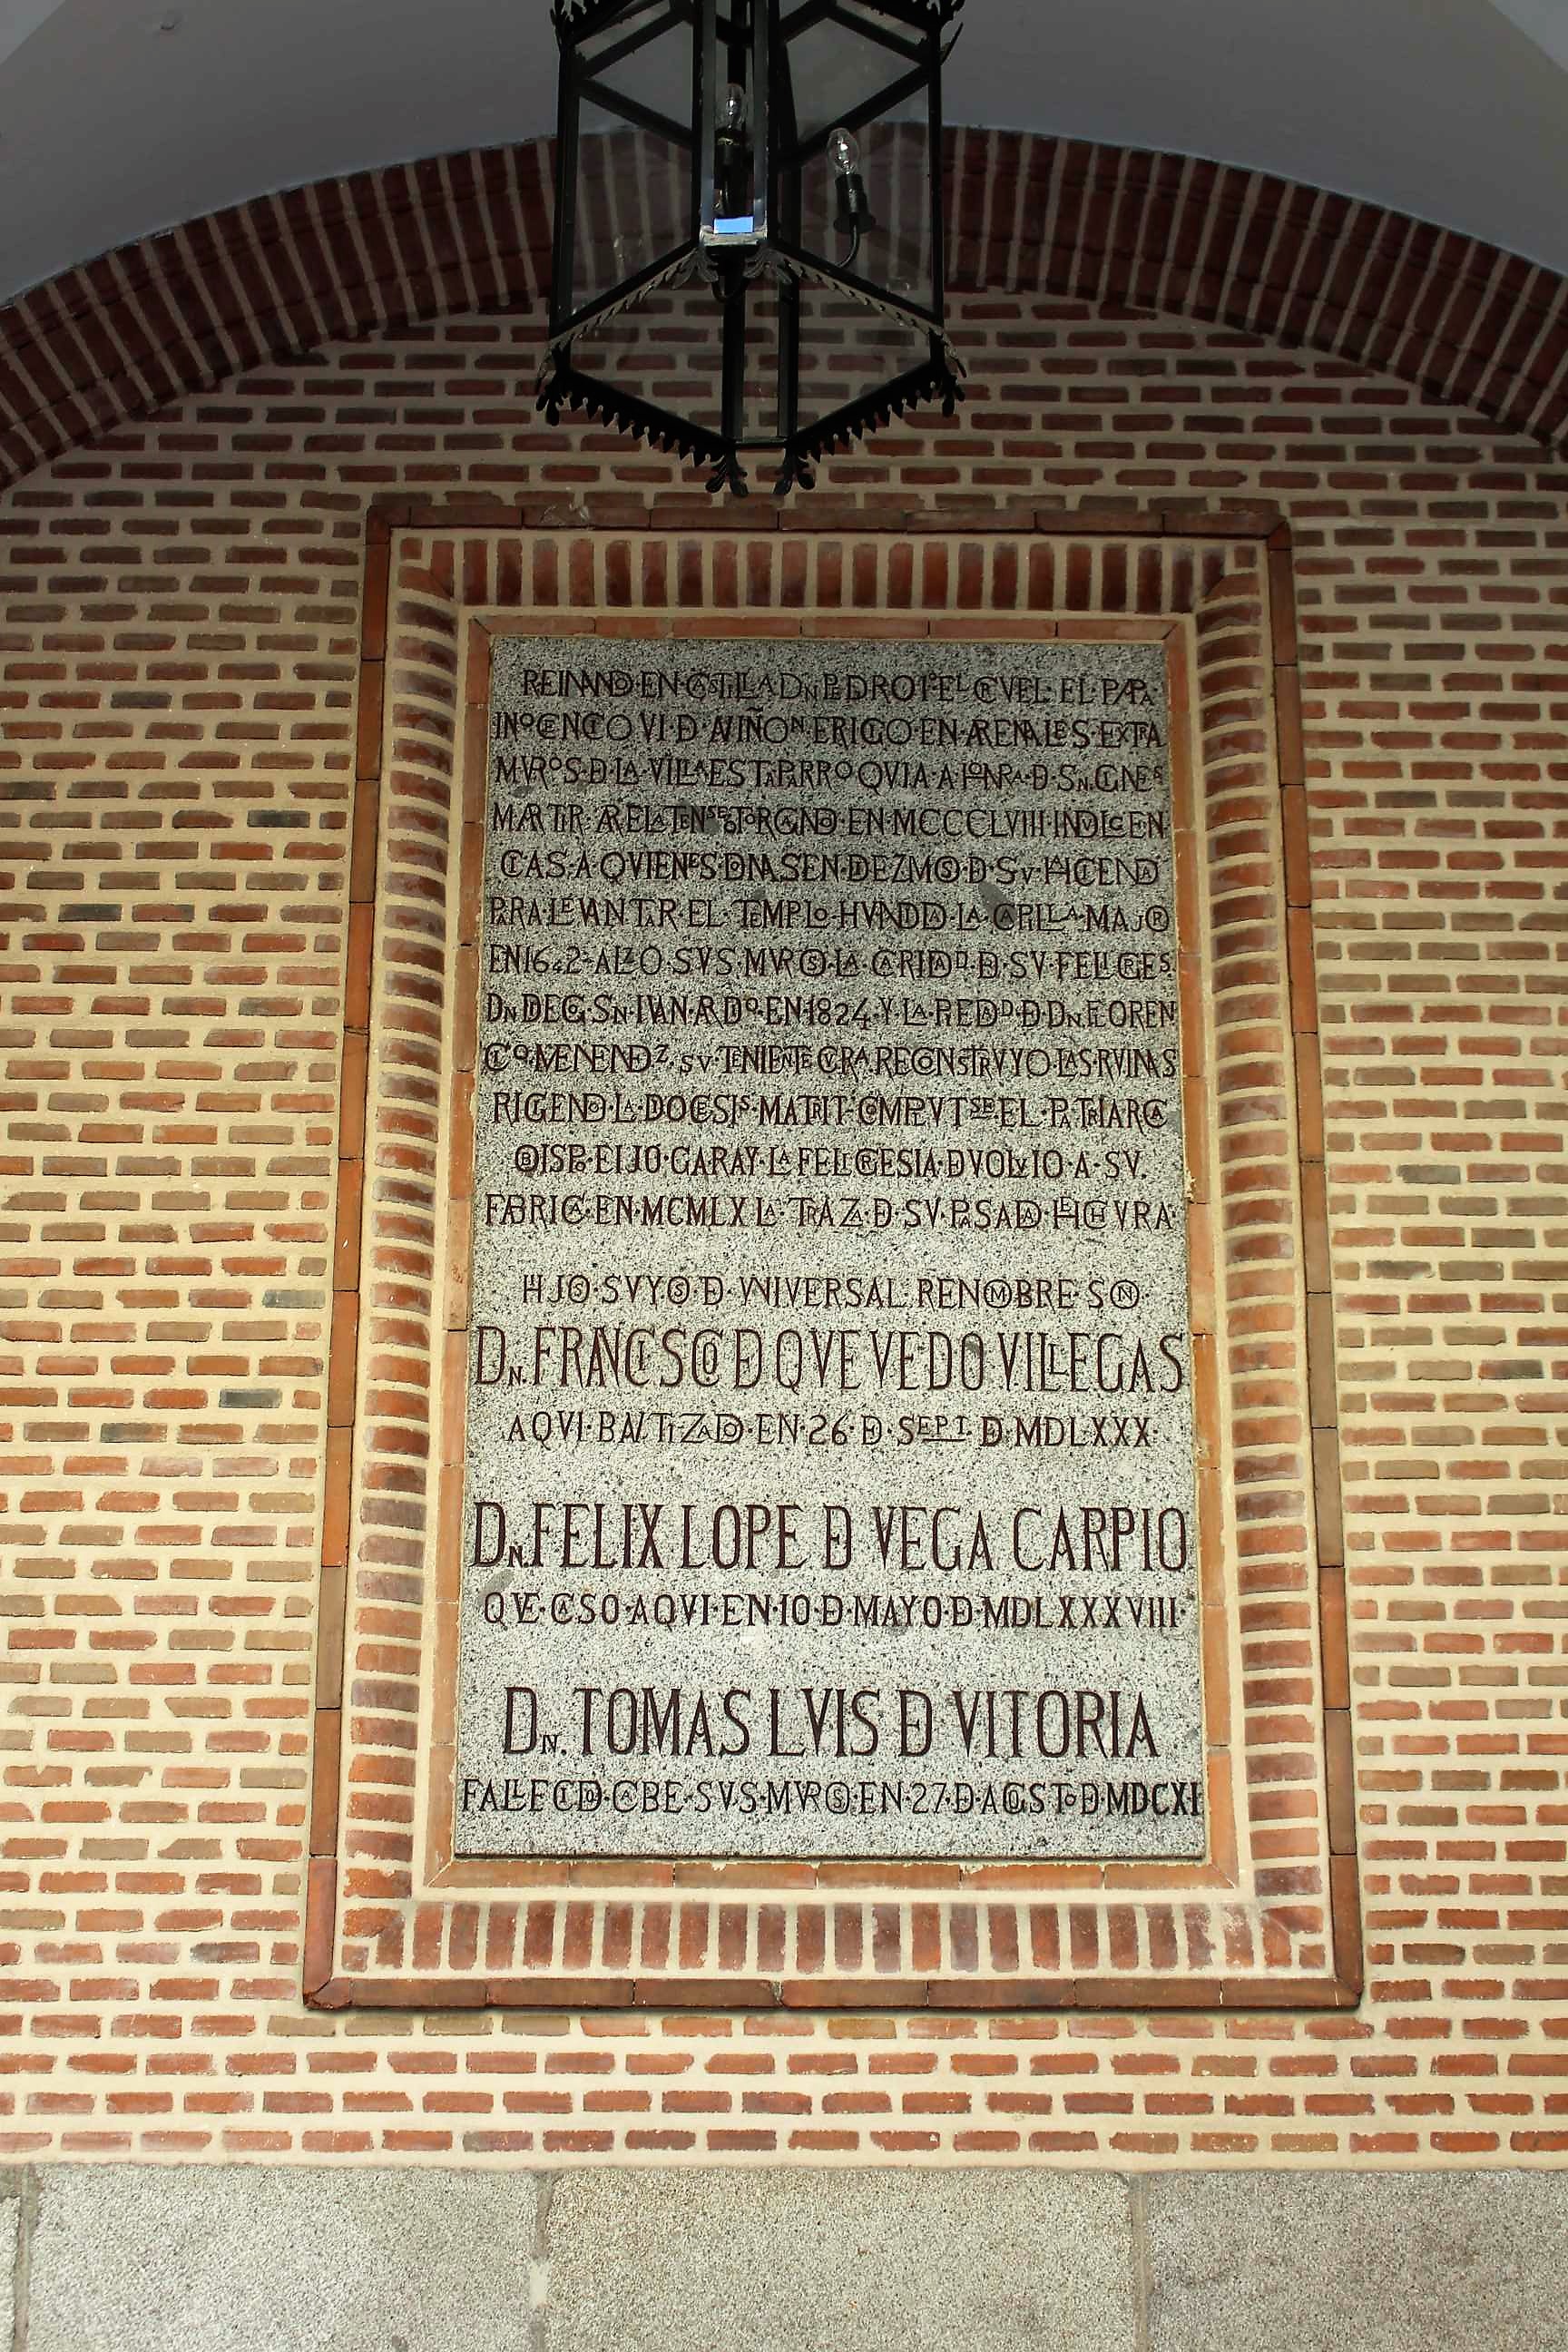 REINANDO·EN·CASTILLA DN PEDRO I·EL·CRVEL·EL·PAPA·
INOCENCIO VI·DE·AVIÑON·ERIGIO·EN·ARENALES·EXTRA
MVROS·DE·LA·VILLA ESTA PARROQVIA·A·HONRA·DE·SN·GINES
MARTIR·ARELATENSE·OTORGANDO·EN·MCCCLVIII·INDVLGEN
CIAS·A·QVIENES·DONASEN·DIEZMOS·DE·SV·HACIENDA
PARA·LEVANTAR·EL·TEMPLO·HVNDIDA·LA·CAPILLA·MAJOR
EN 1642·ALZO·SVS·MVROS·LA·CARIDAD·DE·SV·FELIGRES
DN DIEGO·SN·IVAN·Y·LA·PIEDAD·DE·DN·FLOREN
CIO·MENENDEZ·SV·TENIENTE CVRA·RECONSTRVYO·LAS·RVINAS
RIGIENDO·LA·DIOCESIS·MATRIT·COMPLVTSE·EL·PATRIARCA
OBISPO·EIJO·GARAY·LA FELIGRESIA·DEVOLVIO·A·SV·
FABRICA·EN·MCMLX LA·TRAZA·DE·SV·PASADA·HECHVRA·
HIJOS·SVYOS·DE·VNIVERSAL·RENOMBRE·SON·
DN. FRANCISCO DE QVEVEDO VILLEGAS
AQVI·BAVTIZADO·EN·26·DE·SEPT·DE·MDLXXX·
DN. FELIX LOPE DE VEGA CARPIO
QVE·CASO·AQVI·EN·10·DE·MAYO·DE·MDLXXXVIII·
DN. TOMAS LVIS DE VITORIA
FALLECIDO·CABE·SVS·MVROS·EN·27·DE·AGOSTO·DE·MDCXI